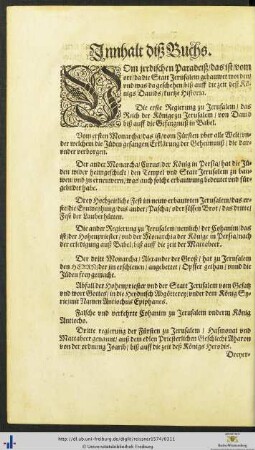 Innhalt diß Buchs.
Vom jrdischen Paradeiß/ das ist/ vom
ort/ da die Statt Jerusalem gebauwet worden/
und was da geschehen biß auff die zeit deß Kö-
nigs Davids/ kurtze Historia.
Die erste Regierung zu Jerusalem/ das
Reich der Könige zu Jerusalem/ von David
biß auff die Gefängnuß in Babel.
Vom ersten Monarcha/ das ist/ vom Fürsten aller Welt/ un-
der welchem die Jüden gefangen/ Erklärung der Geheimnuß/ die
darunder verborgen.
Der ander Monarcha/ Cyrus/ der König in Persia/ hat die Jü-
den wider heimgeschickt/ den Tempel und Statt Jerusalem zu bau-
wen und zu erneuwern/ was auch solche erbauwung bedeutet und für-
gebildet habe.
Drey Hochzeitliche Fest im neuw erbauweten Jerusalem/ das er-
ste die Einweyhung/ das ander/ Pascha/ oder süssen Brot/ das dritte/
Fest der Lauberhütten.
Die ander Regierung zu Jerusalem/ nemlich/ der Cohanim/ das
ist der Hohenpriester/ und der Monarcha der Könige in Persia/ nach
der erledigung auß Babel/ biß auff die zeit der Maccabeer.
Der dritt Monarcha/ Alexander der Groß/ hat zu Jerusalem
den HERRN/ der jm erschienen/ angebettet/ Opffer gethan/ und die
Jüden frey gemacht.
Abfall der Hohenpriester und der Statt Jerusalem vom Gesatz
und wort Gottes/ in die Heydnisch Abgötterey/ under dem König Sy-
rie mit Namen Antiochus Epiphanes.
Falsche und verkehrte Cohanim zu Jerusalem under m König
Antiocho.
Dritte regierung der Fürsten zu Jerusalem/ Hasmonai und
Maccabeer genannt/ auß dem edlen Priesterlichen Geschlecht Aharon
von der ordnung Joarib/ biß auff die zeit deß Königs Herodis.
Dreyer-
http://dl.ub.uni-freiburg.de/diglit/reissner1574/0011
© Universitätsbibliothek Freiburg